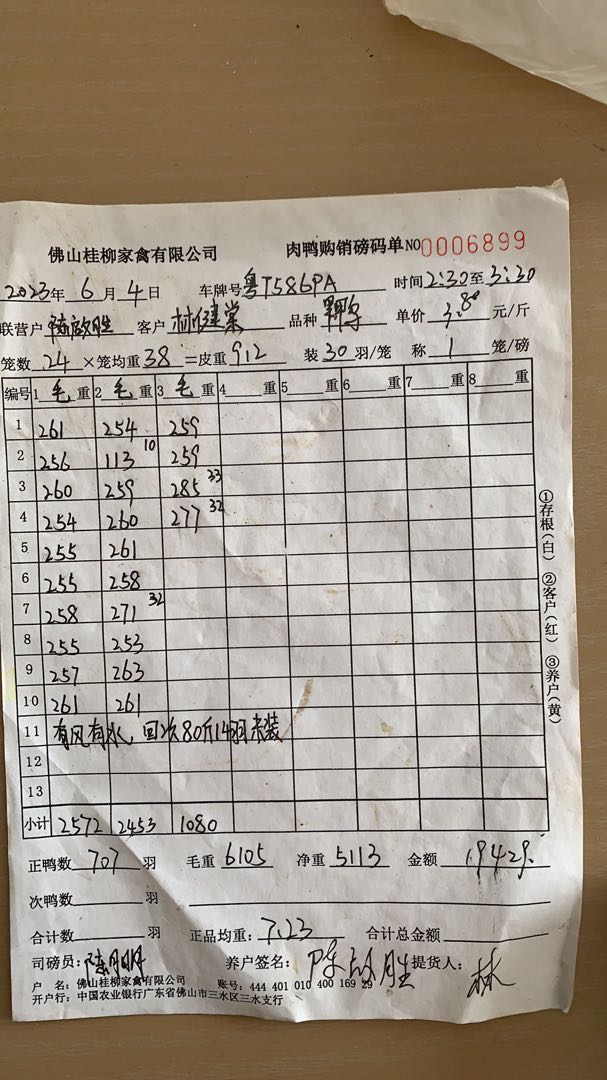 佛山桂柳家禽有限公司 肉鸭购销磅码单 NO 0006899
2023年 6 月 4 日 车牌号 粤T586PA 时间 2:30 至 3:30
联营户 客户 林健棠 品种 单价 3.80 元/斤
笼数 24 ×笼均重 38 =皮重 912 装 30 羽/笼 称 1 笼/磅
编号 1 毛 重 2 毛 重 3 毛 重 4 重 5 重 6 重 7 重 8 重
1 261 254 259
2 256 113 10 259
3 260 259 285 33
4 254 260 277 32
5 255 261
6 255 258
7 258 271 32
8 255 253
9 257 263
10 261 261
11 有风有水, 回次80斤14羽未装
12
13
小计 2572 2453 1080
正鸭数 707 羽 毛重 6105 净重 5113 金额 19429.
次鸭数 羽
合计数 羽 正品均重: 7.23 合计总金额
司磅员: 养户签名: 提货人: 林
户 名: 佛山桂柳家禽有限公司 账号: 444 401 010 400 169 29
开户行: 中国农业银行广东省佛山市三水区三水支行
①存根(白) ②客户(红) ③养户(黄)